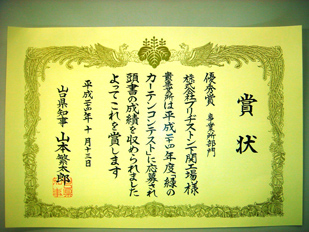 賞状
優秀賞 事業所部門
株式会社ブリヂストン下関工場様
貴事業所は平成二十四年度「緑の
カーテンコンテスト」に応募され
頭書の成績を収められました
よってこれを賞します
平成二十四年十月十三日
山口県知事 山本繁太郎